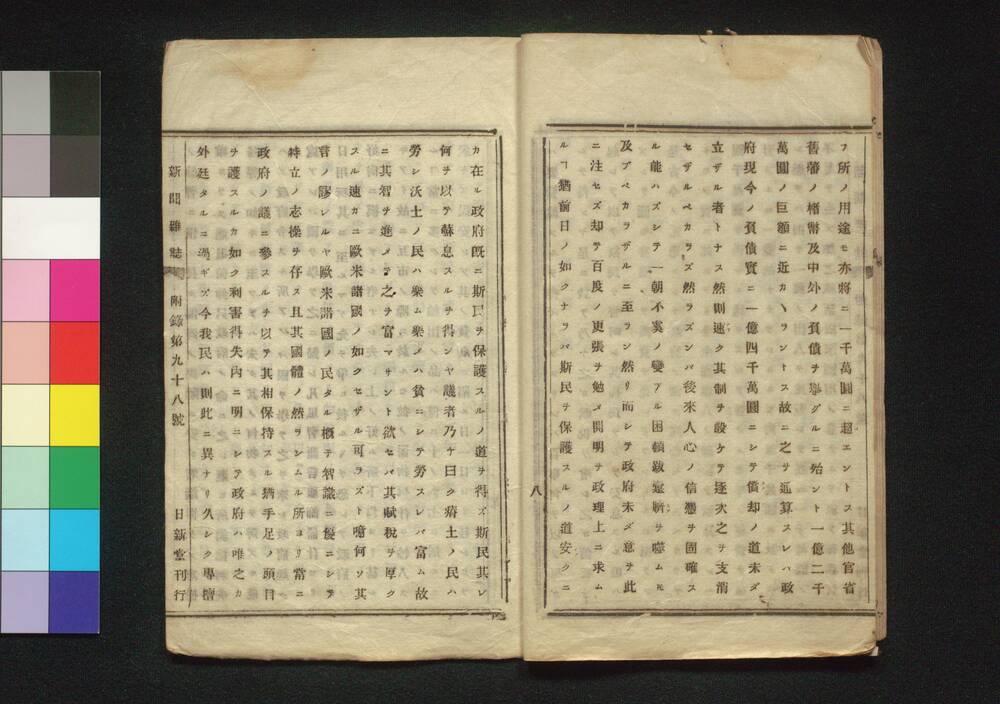 フ所ノ用途モ亦將ニ一千萬圓ニ超エントス其他官省
舊藩ノ楮幣及中外ノ負債ヲ擧グルニ殆ント一億二千
萬圓ノ巨額ニ近カヽラントス故ニ之ヲ通算スレハ政
府現今ノ負債實ニ一億四千萬圓ニシテ償却ノ道未ダ
立ザル者トナス然則速ク其制ヲ設ケテ逐次之ヲ支消
セザルベカラズ然ラズンバ後來人心ノ信憑ヲ固確ス
ル能ハズシテ一朝不虞ノ變アル困頓跋疐臍ヲ噬ム㪽
及ブベカラザルニ至ラン然リ而シテ政府未ダ意ヲ此
ニ注セズ却テ百度ノ更張ヲ勉メ開明ヲ政理上ニ求ム
ルヿ猶前日ノ如クナラバ斯民ヲ保護スルノ道安クニ
八
カ在ル政府既ニ斯民ヲ保護スルノ道ヲ得ズ斯民其レ
何ヲ以テ蘇息スルヲ得ンヤ議者乃ケ曰ク瘠土ノ民ハ
勞シ沃土ノ民ハ樂ム樂メハ貧ニシテ勞スレバ富ム故
ニ其智ヲ進メテ之ヲ富マサント欲セバ其賦稅ヲ厚ク
スル速カニ歐米諸國ノ如クセザル可ラズト噫何ソ其
言ノ謬レルヤ歐米諸國ノ民タル概テ智識ニ優ニシテ
特立ノ志操ヲ存ス且其國體ノ然ラシムル所ヨリ常ニ
政府ノ議ニ參スルヲ以テ其相保持スル猶手足ノ頭目
ヲ護スルカ如ク利害得失內ニ明ニシテ政府ハ唯之カ
外廷タルニ過ギズ今我民ハ則此ニ異ナリ久シク專擅
新聞雜誌 附錄第九十八號 日新堂刊行